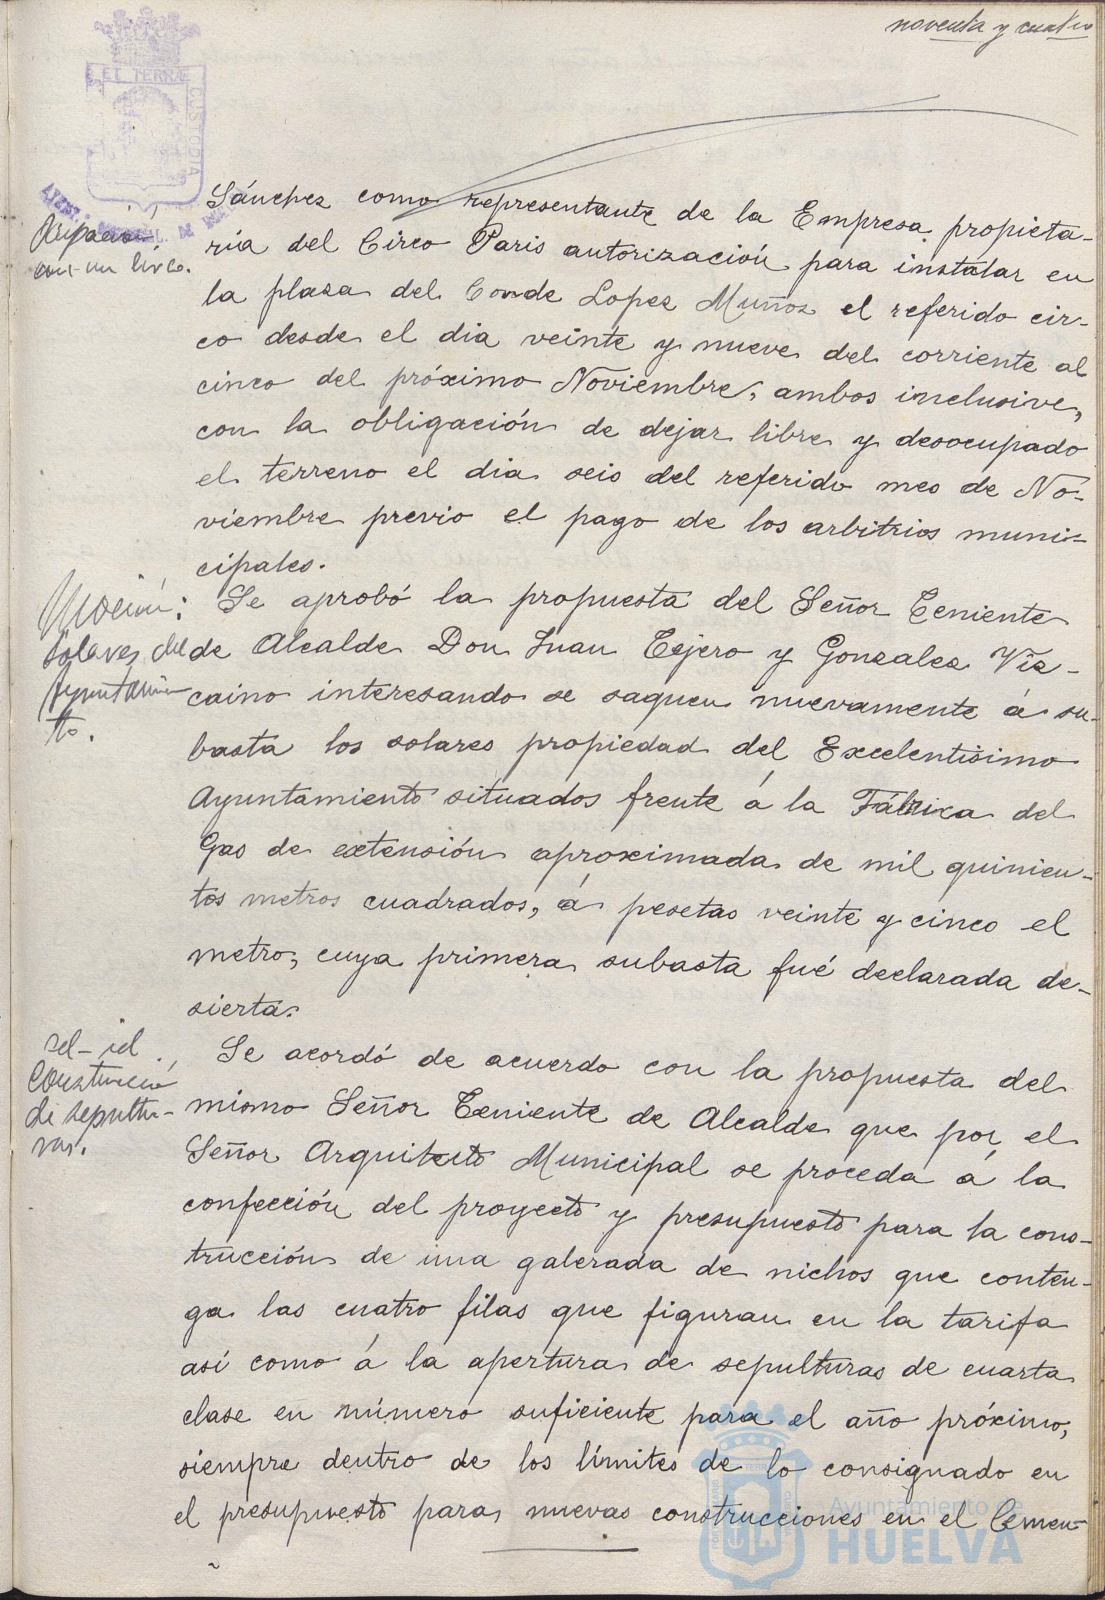 noventa y cuatro
ET TERRÆ
CUSTODIA
Sánchez como representante de la Empresa propieta-
ria del Circo Paris autorización para instalar en
la plaza del Conde Lopez Muñoz el referido cir-
co desde el dia veinte y nueve del corriente al
cinco del próximo Noviembre, ambos inclusive,
con la obligación de dejar libre y desocupado
el terreno el dia seis del referido mes de No-
viembre previo el pago de los arbitrios muni-
cipales.
con un circo.
Moción:
Solares del
Ayuntamien
to.
Se aprobó la propuesta del Señor Teniente
de Alcalde Don Juan Tejero y Gonzalez Viz-
caino interesando se saquen nuevamente á su-
basta los solares propiedad del Excelentisimo
Ayuntamiento situados frente á la Fábrica del
Gas de extensión aproximada de mil quinien-
tos metros cuadrados, á pesetas veinte y cinco el
metro, cuya primera subasta fué declarada de-
sierta.
id - id.
Construcción
de sepultu-
ras.
Se acordó de acuerdo con la propuesta del
mismo Señor Teniente de Alcalde que por el
Señor Arquitecto Municipal se proceda á la
confección del proyecto y presupuesto para la cons-
trucción de una galerada de nichos que conten-
ga las cuatro filas que figuran en la tarifa
así como á la apertura de sepulturas de cuarta
clase en número suficiente para el año próximo,
siempre dentro de los límites de lo consignado en
el presupuesto para nuevas construcciones en el Cemen-
Ayuntamiento de
HUELVA